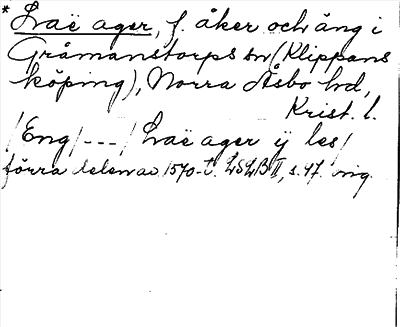 * Lvaë ager, f. åker och äng i
Gråmanstorps sn (Klippans
köping), Norra Åsbo hd,
Krist. l.
/Eng/ --- / Lvaë ager ÿ les/
förra delen av 1570-t. LSLB II, s. 47. orig.